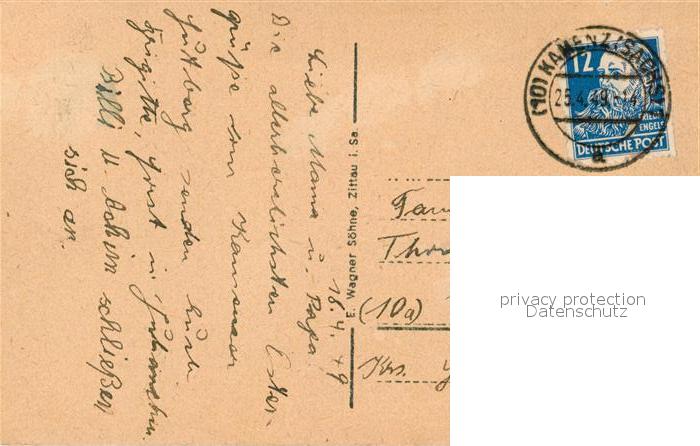 18.4.49
Liebe Mama u. Papa
Die allerherzlichsten Oster-
grüße vom Kamenzer
Hutberg senden Euch
Brigitte, Horst u.
Billi u. Achim schließen
sich an.
E. Wagner Söhne, Zittau i. Sa.
(10) KAMENZ (SACHS)
25.4.49
a
12
FRIEDR
ENGELS
DEUTSCHE POST
Fam
(10a)
Krs.
privacy protection
Datenschutz